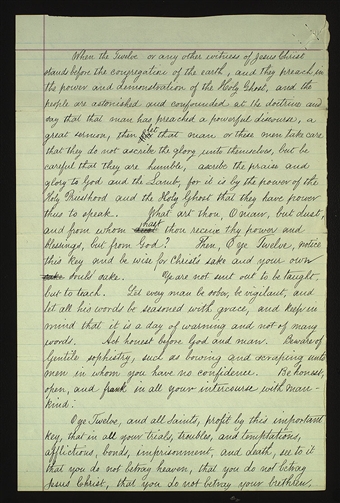 When the Twelve or any other witness of Jesus Christ
stands before the congregation of the earth, and they preach in
the power and demonstration of the Holy Ghost, and the
people are astonished and confounded at the doctrine and
say that that man has preached a powerful discourse, a
great sermon, then let that man or these men take care
that they do not ascribe the glory unto themselves, but be
careful that they are humble, ascribe the praise and
glory to God and the Lamb, for it is by the power of the
Holy Priesthood and the Holy Ghost that they have power
thus to speak. What art thou, O man, but dust,
and from whom hast thou receive thy power and
blessings, but from God? Then, O ye Twelve, notice
this key and be wise for Christ's sake and your own
souls sake. Ye are not sent out to be taught,
but to teach. Let every man be sober, be vigilant, and
let all his words be seasoned with grace, and keep in
mind that it is a day of warning and not of many
words. Act honest before God and man. Beware of
Gentile sophistry, such as bowing and scraping unto
men in whom you have no confidence. Be honest,
open, and frank in all your intercourse with man-
kind:
O ye Twelve, and all Saints, profit by this important
key, that in all your trials, troubles, and temptations,
afflictions, bonds, imprisonment, and death, see to it
that you do not betray heaven, that you do not betray
Jesus Christ, that you do not betray your brethren,